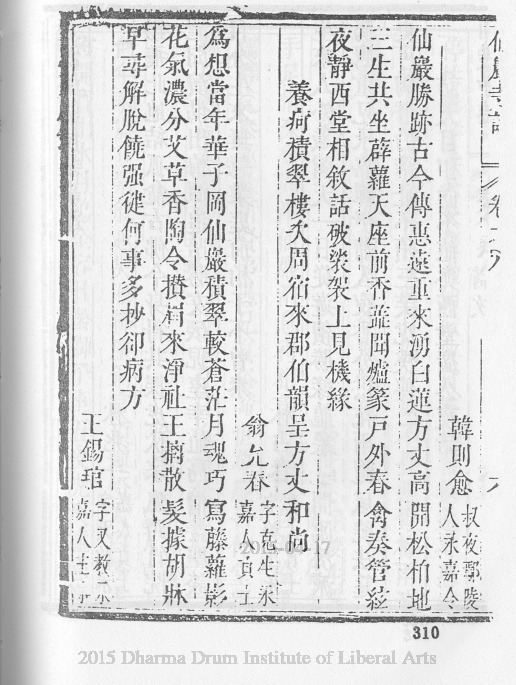 仙巖寺誌 卷之八
韓則愈 叔夜鄢陵人永嘉令
仙巖勝跡古今傳惠遠重來湧白蓮方丈高開松柏地
三生共坐薜蘿天座前香藹聞爐篆戶外春禽奏管絃
夜靜西堂相敘話破袈裟上見機緣
養疴積翠樓次周宿來郡伯韻呈方丈和尚
翁允春 字克生永嘉人貢士
爲想當年華子岡仙巖積翠較蒼茫月魂巧寫藤蘿影
花氣濃分艾草香陶令攢眉來淨社王摛散髮據胡牀
早尋解脫饒强健何事多抄卻病方
王錫琯 字 嘉人
310
2015-04-17
2015 Dharma Drum Institute of Liberal Arts